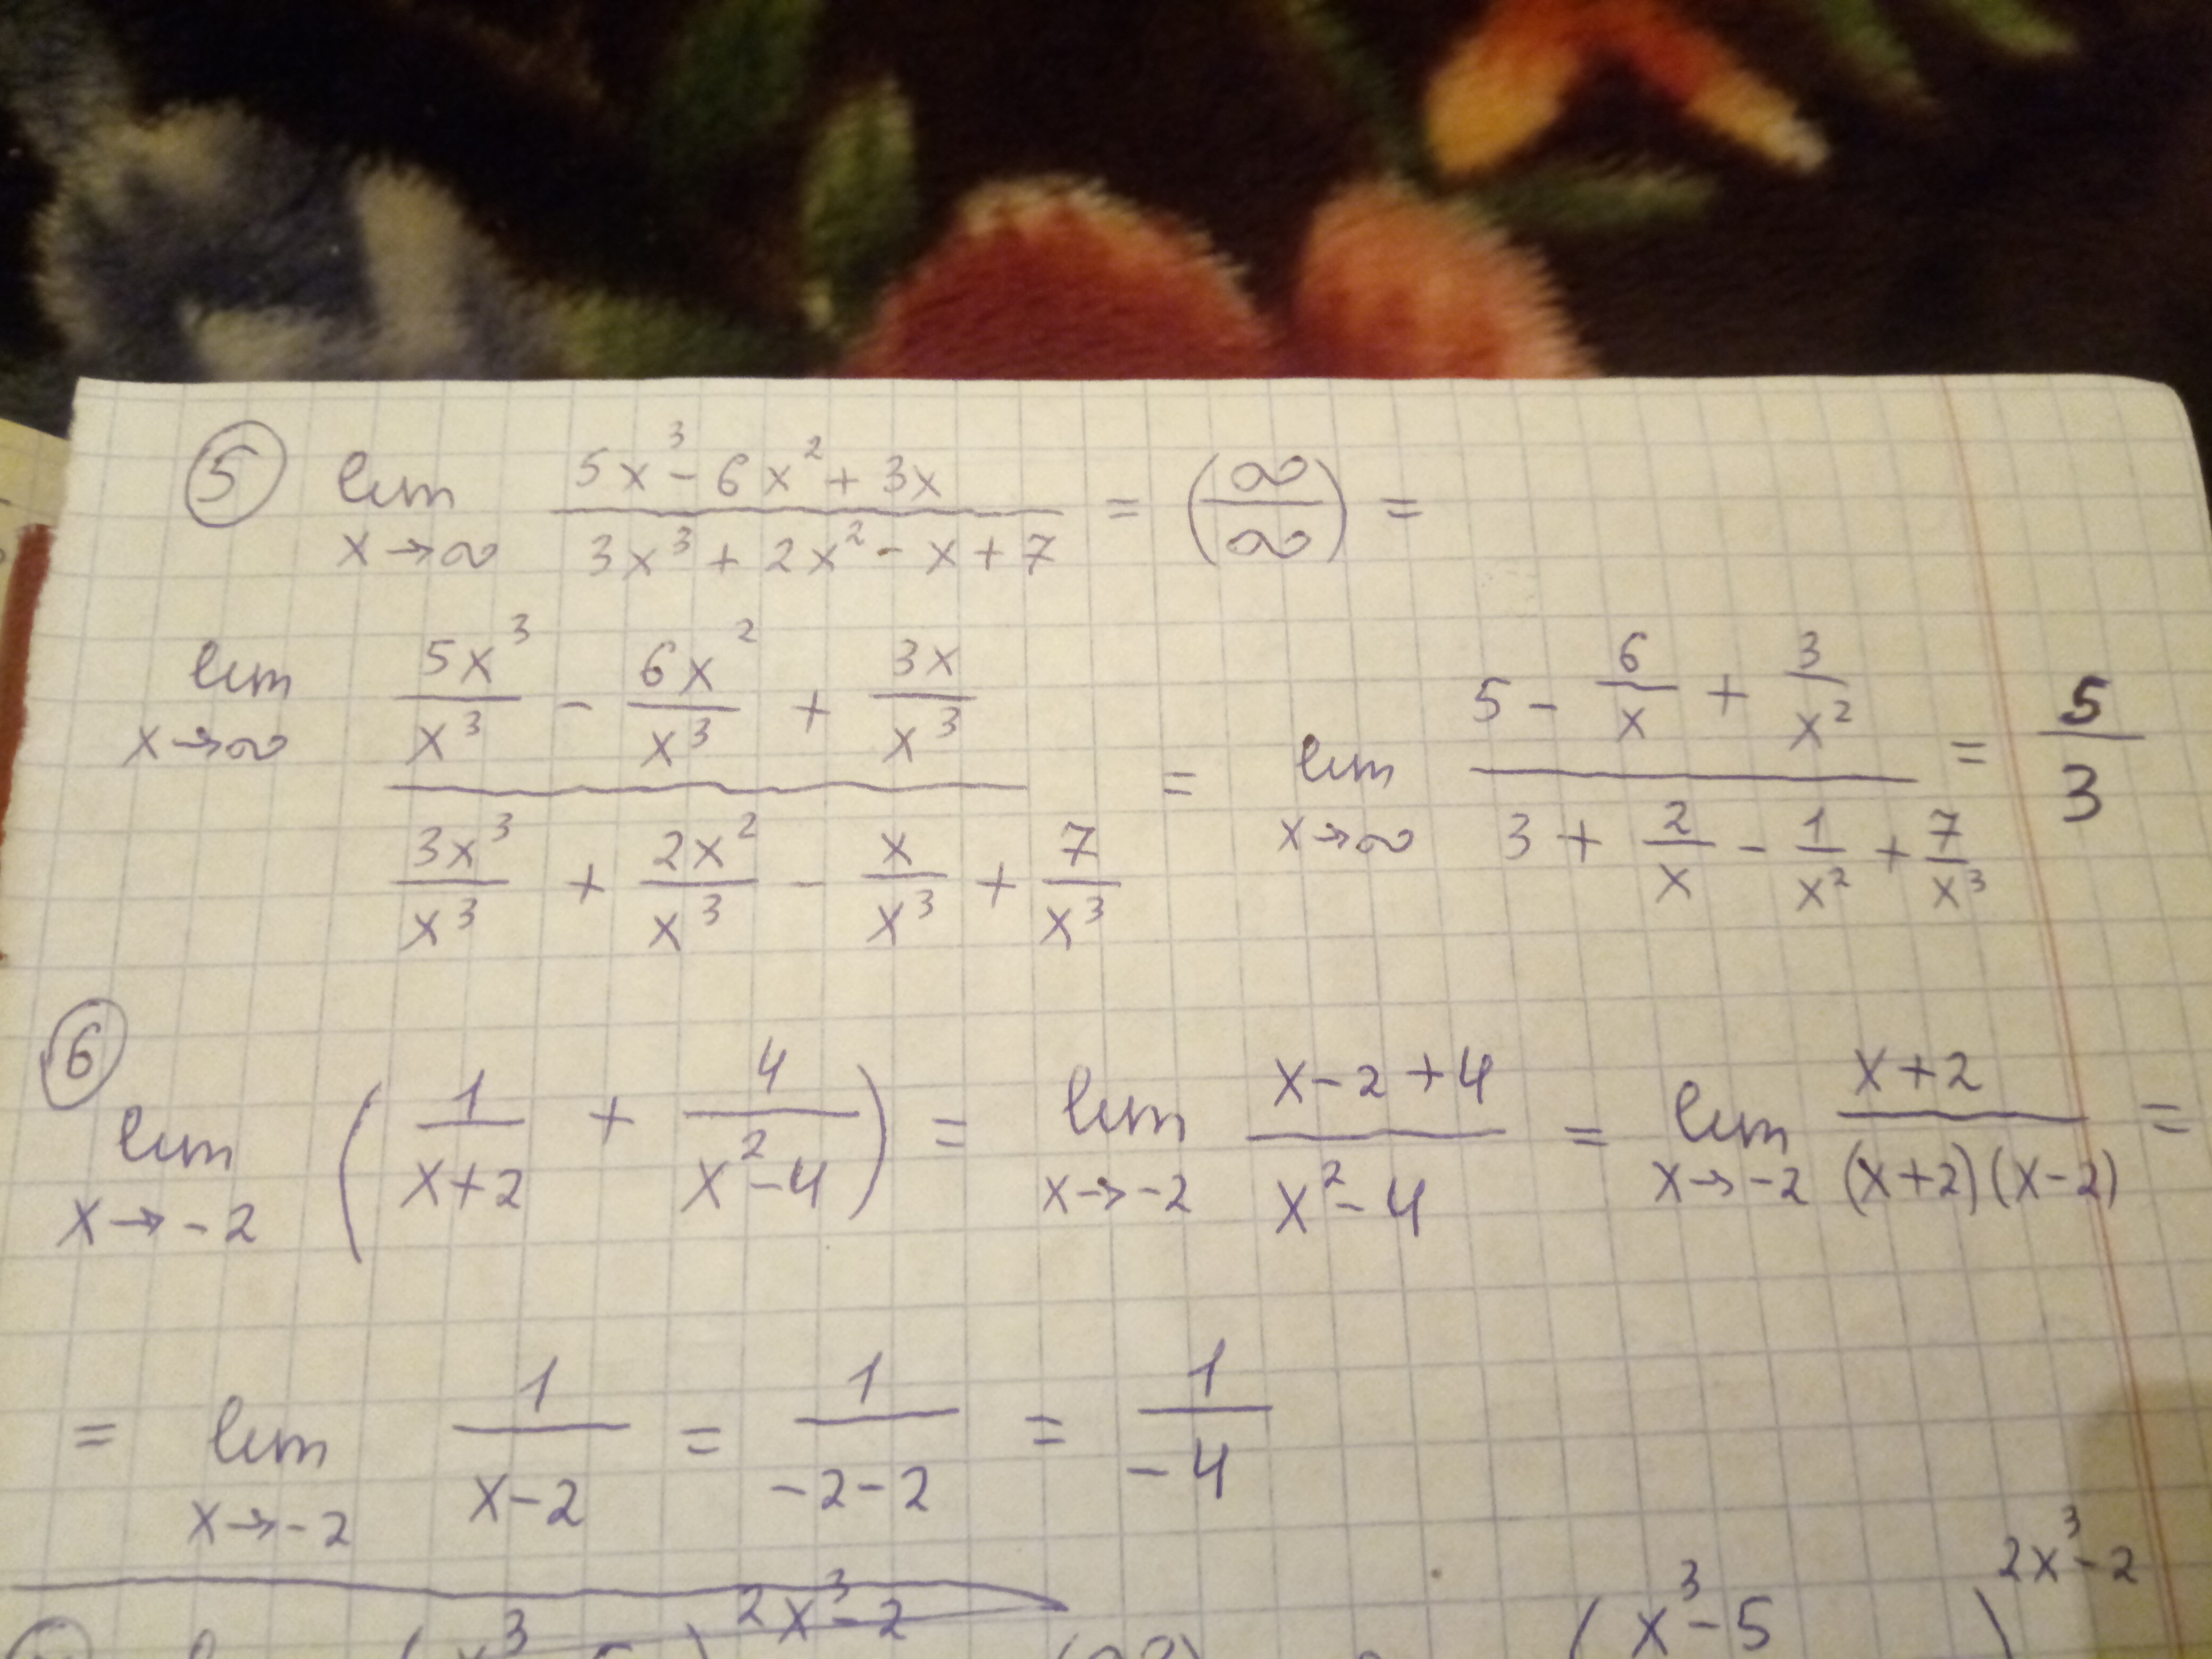 ⑤ lim x→∞ (5x³ - 6x² + 3x)/(3x³ + 2x² - x + 7) = (∞/∞) =
lim x→∞ (5x³/x³ - 6x²/x³ + 3x/x³)/(3x³/x³ + 2x²/x³ - x/x³ + 7/x³) = lim x→∞ (5 - 6/x + 3/x²)/(3 + 2/x - 1/x² + 7/x³) = 5/3
⑥ lim x→-2 (1/(x+2) + 4/(x²-4)) = lim x→-2 (x-2+4)/(x²-4) = lim x→-2 (x+2)/((x+2)(x-2)) =
= lim x→-2 1/(x-2) = 1/(-2-2) = 1/(-4)
2x³-2 (x³-5 )2x³-2